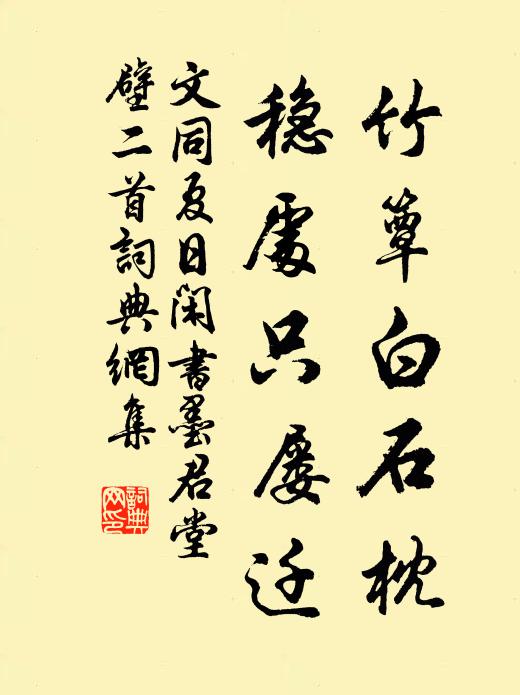 竹簟白石枕
稳處只屡迁
文同夏日闲書墨君堂
壁二首詞典網集
詞典
网印